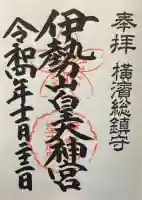 奉拝 横濱総鎮守
伊勢山皇大神宮
令和四年十二月二十二日